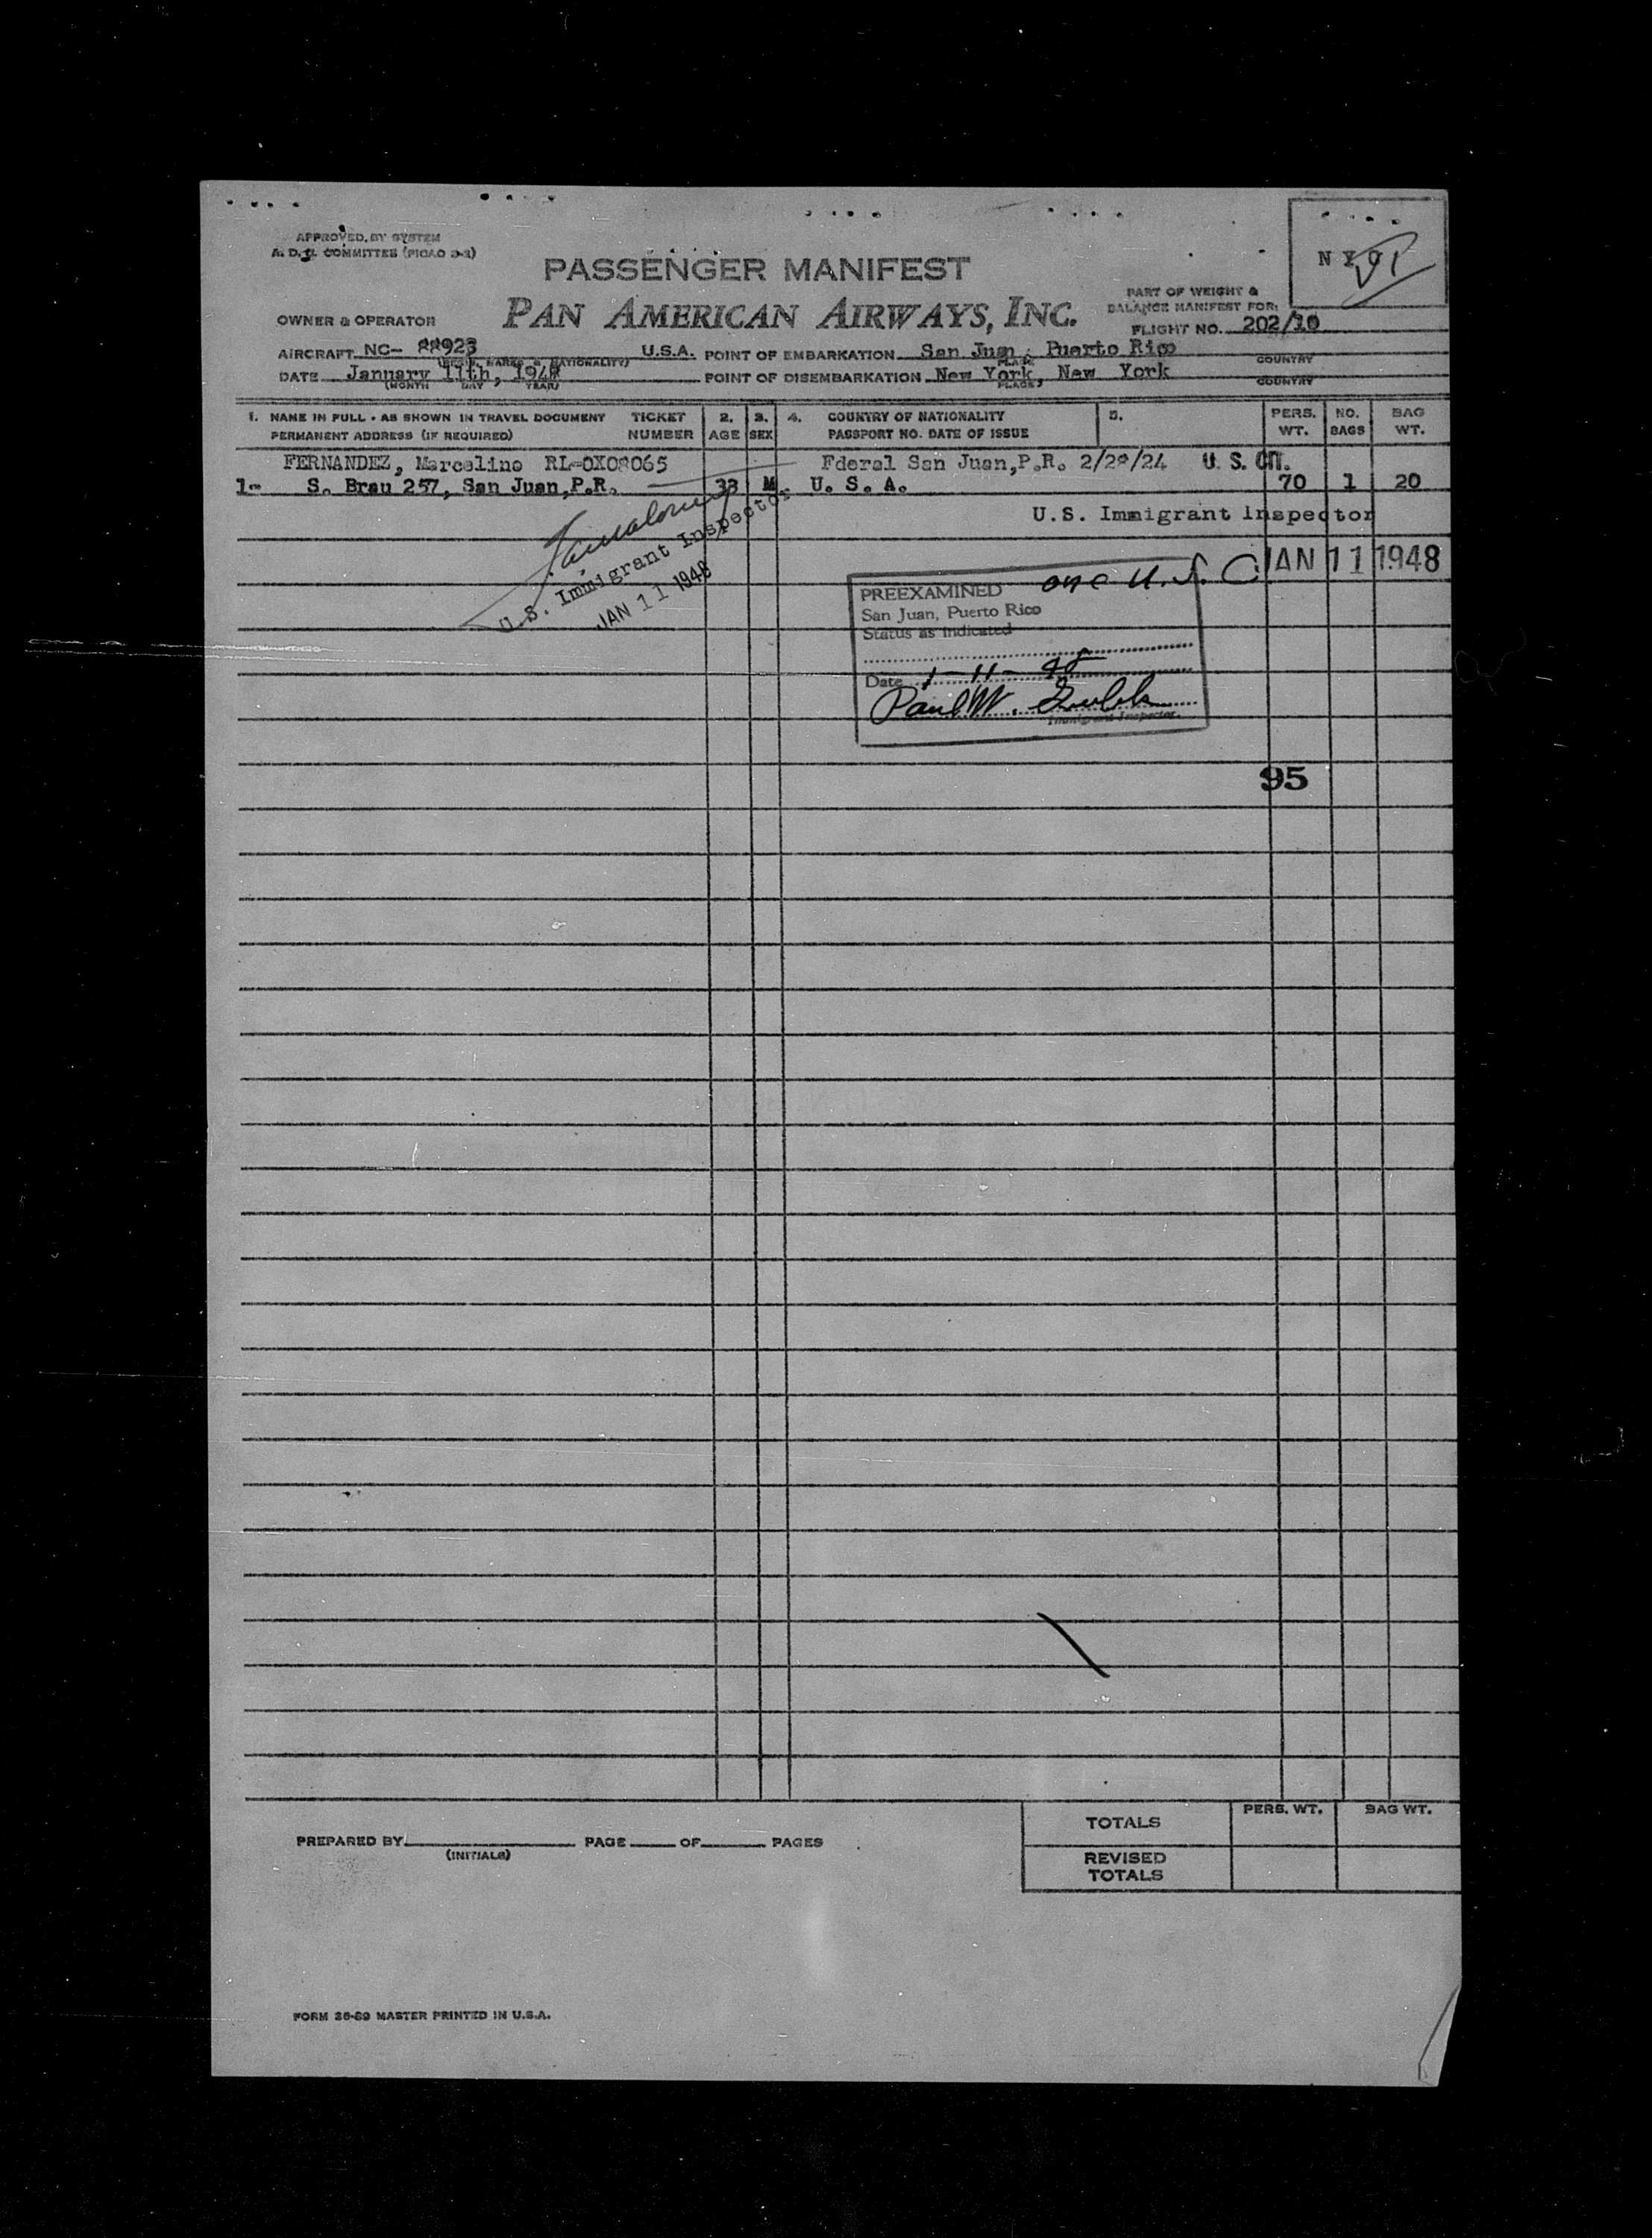 APPROVED BY SYSTEM
A. D. COMMITTEE (PICAO 2-2)
N Y
PASSENGER MANIFEST
PAN AMERICAN AIRWAYS, INC.
PART OF WEIGHT &
BALANCE MANIFEST FOR:
OWNER & OPERATOR
FLIGHT NO. 202/10
AIRCRAFT NC- 88923 U.S.A. POINT OF EMBARKATION San Juan, Puerto Rico
MARKS & NATIONALITY) PLACE COUNTRY
DATE January 11th, 1948 POINT OF DISEMBARKATION New York, New York
(MONTH DAY YEAR) PLACE COUNTRY
1. NAME IN FULL - AS SHOWN IN TRAVEL DOCUMENT TICKET 2. 3. 4. COUNTRY OF NATIONALITY 5. PERS. NO. BAG
PERMANENT ADDRESS (IF REQUIRED) NUMBER AGE SEX PASSPORT NO. DATE OF ISSUE WT. BAGS WT.
FERNANDEZ, Marcelino RL-0X08065 Fderal San Juan, P.R. 2/28/24 U. S. CIT.
1- S. Brau 257, San Juan, P.R. 33 M U. S. A. 70 1 20
U.S. Immigrant Inspector
JAN 11 1948
U.S. Immigrant Inspector
JAN 11 1948
one U.S.C
PREEXAMINED
San Juan, Puerto Rico
Status as indicated
Date 1-11-48
Paul W.
Immigrant Inspector.
95
TOTALS PERS. WT. BAG WT.
PREPARED BY PAGE OF PAGES
(INITIALS)
REVISED
TOTALS
FORM 36-89 MASTER PRINTED IN U.S.A.